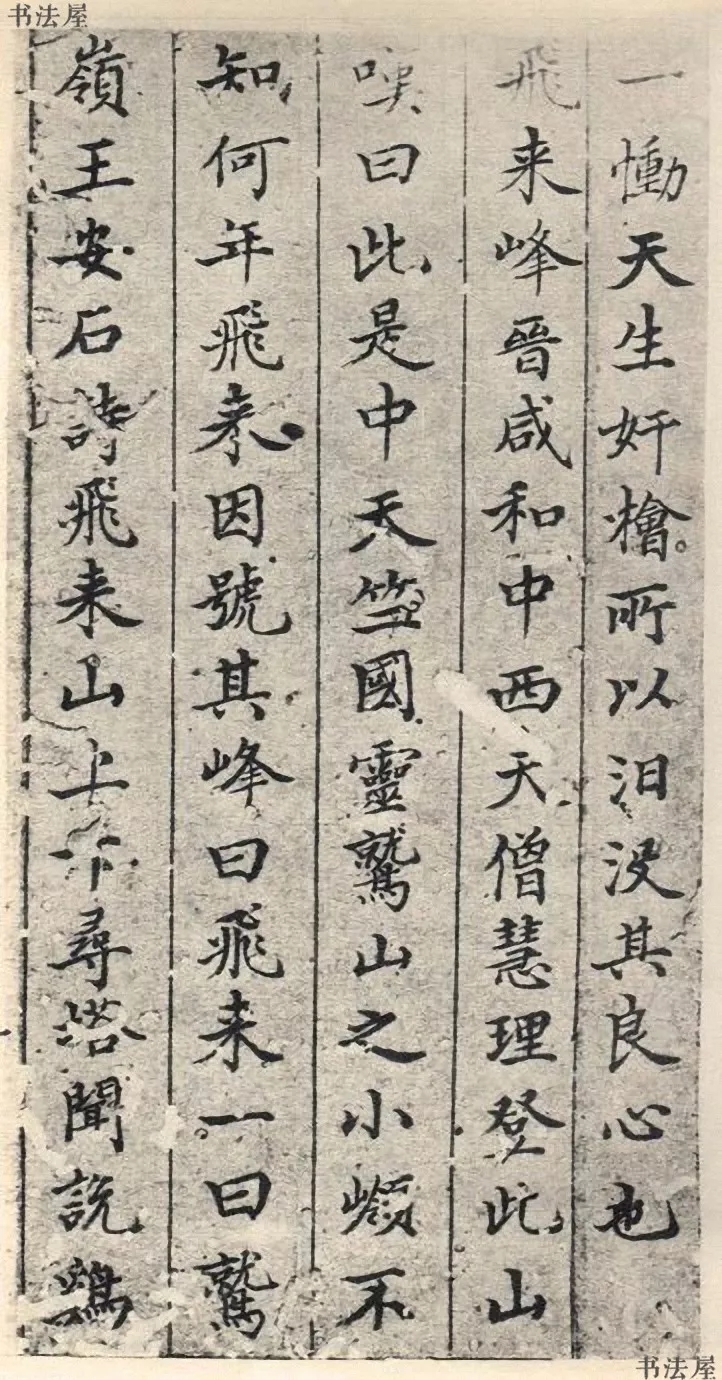 书法屋
一慟天生奸檜所以汨没其良心也
飛来峰晉咸和中西天僧慧理登此山
嘆曰此是中天竺國靈鷲山之小嶺不
知何年飛来因號其峰曰飛来一曰鷲
嶺王安石詩飛来山上千尋塔聞説鷄
书法屋